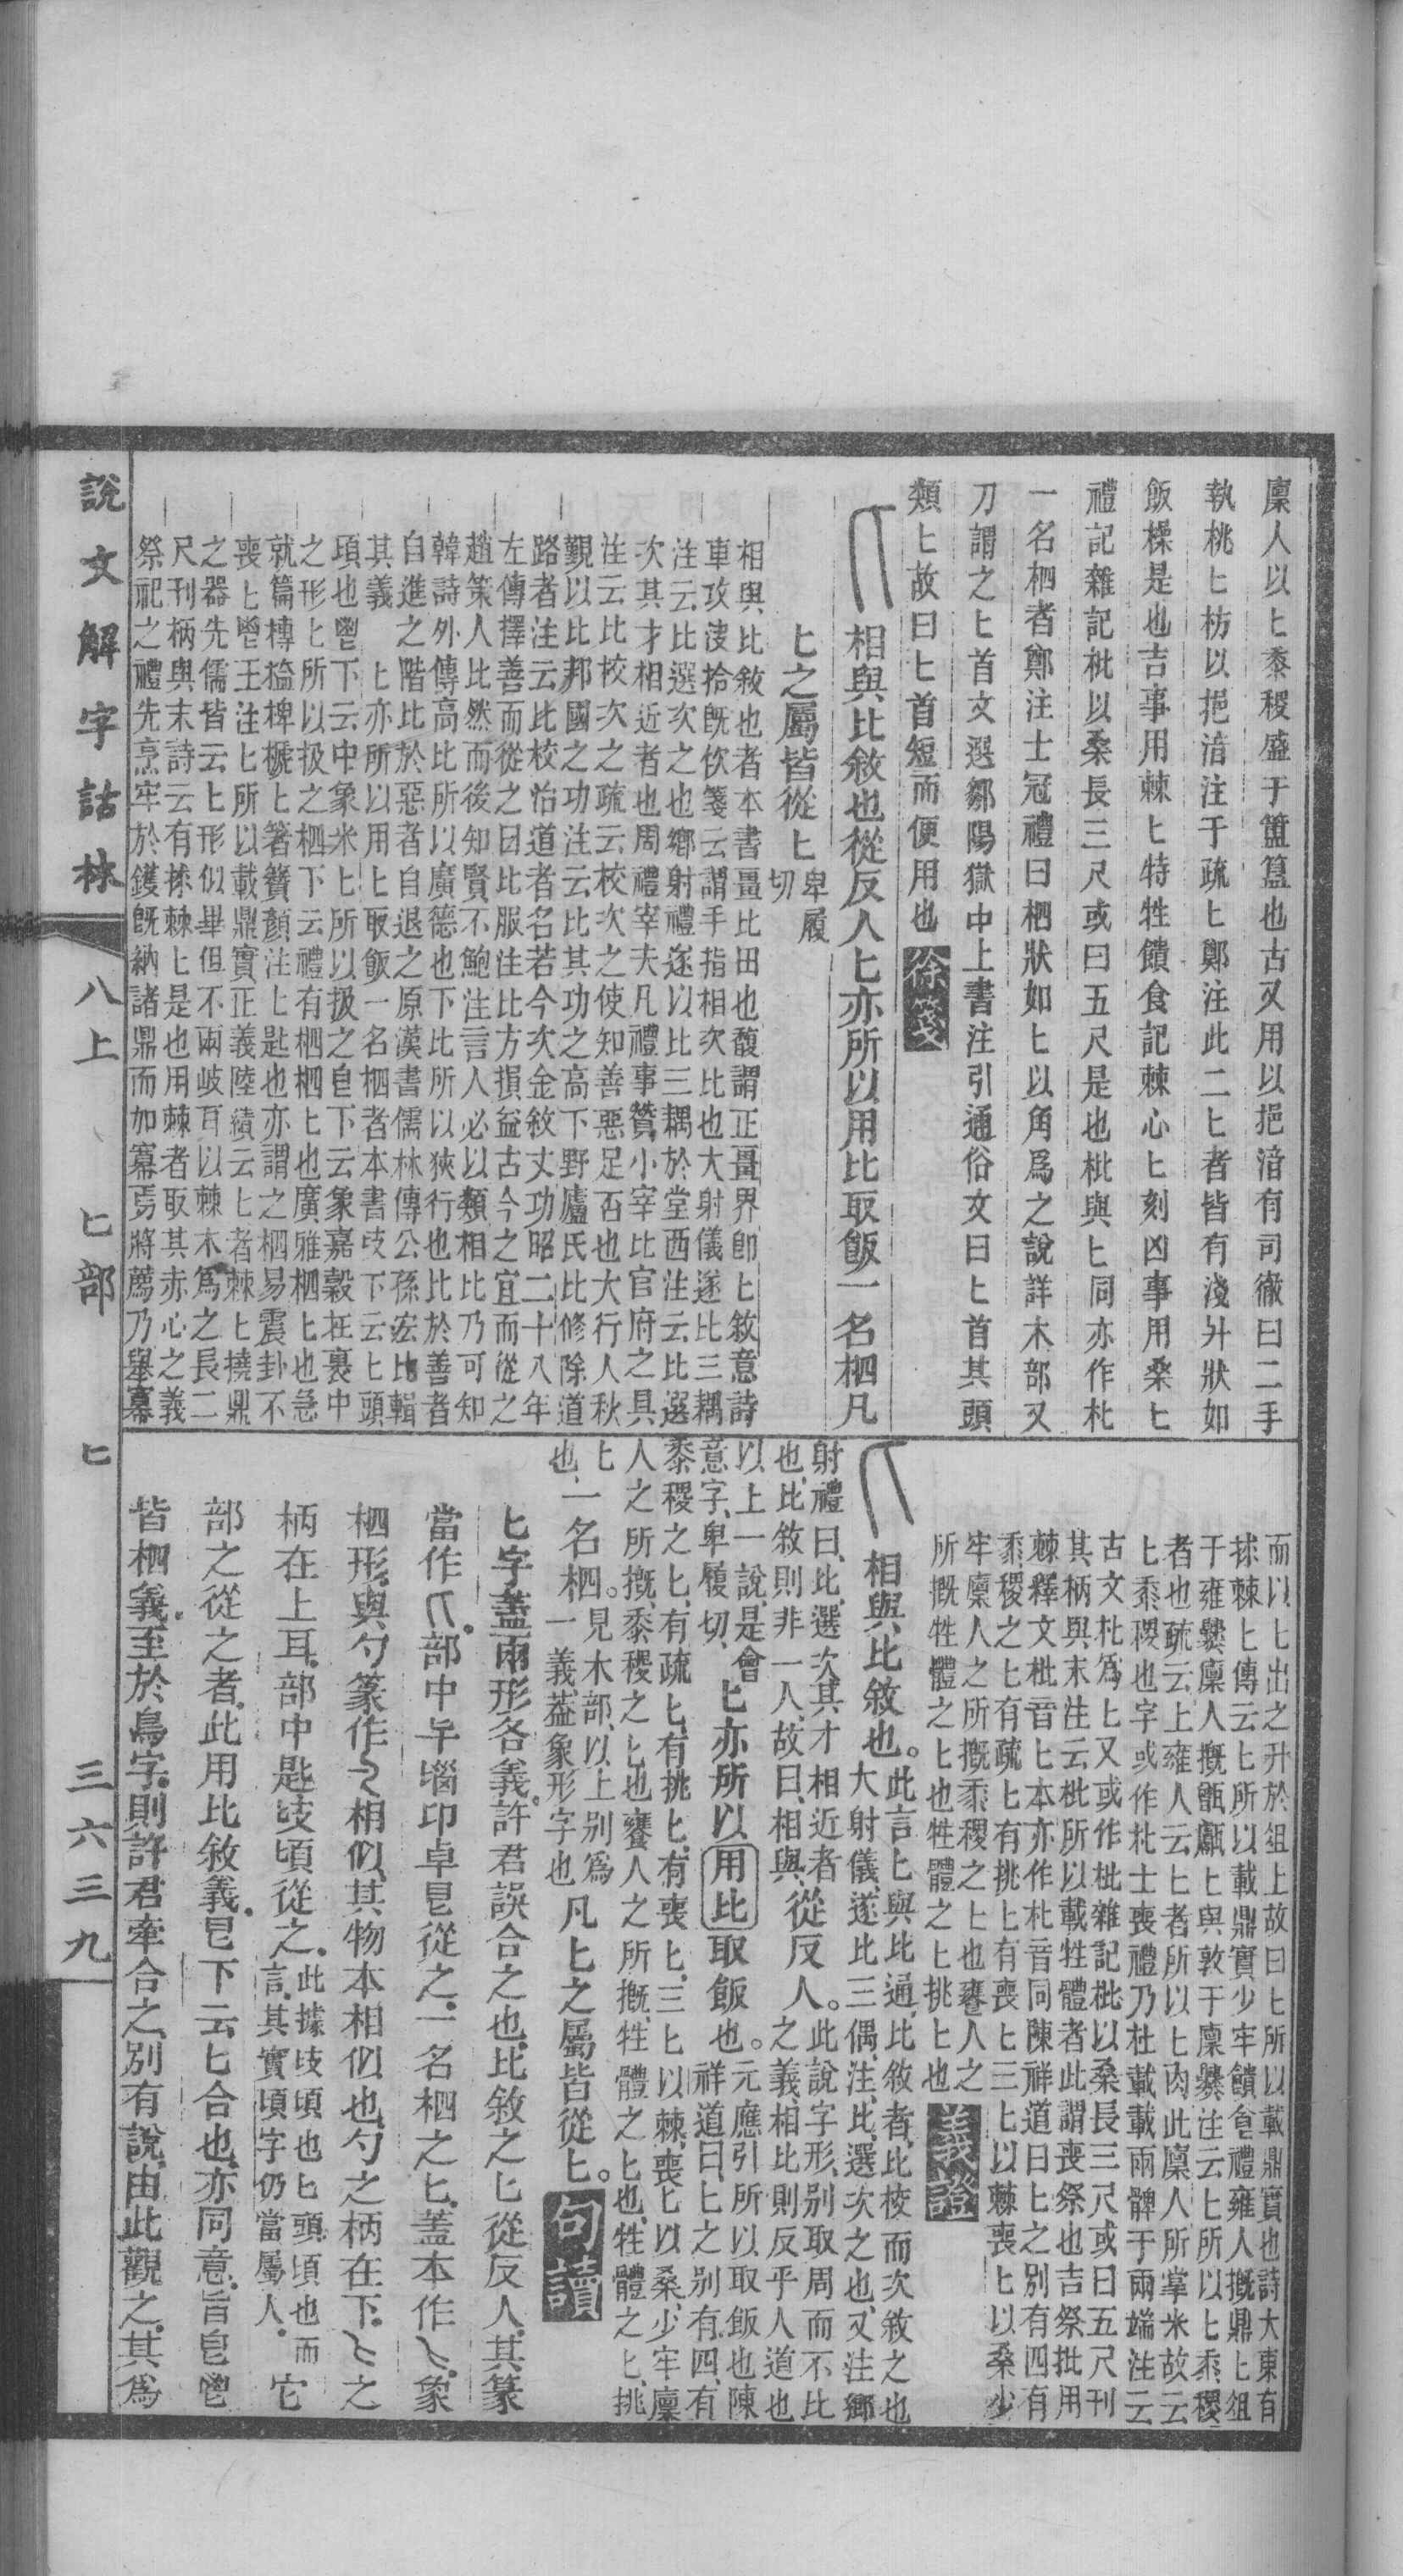 廩人以匕黍稷盛于簠簋也古又用以挹湆有司徹曰二手
執桃匕枋以挹湆注于疏匕鄭注此二匕者皆有淺升狀如
飯橾是也吉事用棘匕特牲饋食記棘心匕刻凶事用桑匕
禮記雜記枇以桑長三尺或曰五尺是也枇與匕同亦作朼
一名柶者鄭注士冠禮曰柶狀如匕以角爲之說詳木部又
刀謂之匕首文選鄒陽獄中上書注引通俗文曰匕首其頭
類匕故曰匕首短而便用也徐箋
相與比敘也從反人匕亦所以用比取飯一名柶凡
匕之屬皆從匕卑履切
相與比敘也者本書畺比田也馥謂正畺界卽匕敘意詩
車攻決拾旣佽箋云謂手指相次比也大射儀遂比三耦
注云比選次之也鄉射禮遂以比三耦於堂西注云比選
次其才相近者也周禮宰夫凡禮事贊小宰比官府之具
注云比校次之疏云校次之使知善惡足否也大行人秋
覲以比邦國之功注云比其功之高下野廬氏比修除道
路者注云比校治道者名若今次金敘丈功昭二十八年
左傳擇善而從之曰比服注比方損益古今之宜而從之
趙策人比然而後知賢不鮑注言人必以類相比乃可知
韓詩外傳高比所以廣德也下比所以狹行也比於善者
自進之階比於惡者自退之原漢書儒林傳公孫宏比輯
其義　匕亦所以用匕取飯一名柶者本書歧下云匕頭
頃也鬯下云中象米匕所以扱之皀下云象嘉穀在裹中
之形匕所以扱之柶下云禮有柶柶匕也廣雅柶匕也急
就篇槫榼椑榹匕箸籫顏注匕匙也亦謂之柶易震卦不
喪匕鬯王注匕所以載鼎實正義陸績云匕者棘匕撓鼎
之器先儒皆云匕形似畢但不兩岐耳以棘木爲之長二
尺刊柄與末詩云有捄棘匕是也用棘者取其赤心之義
祭祀之禮先烹牢於鑊旣納諸鼎而加冪焉將薦乃舉冪
而以匕出之升於俎上故曰匕所以載鼎實也詩大東有
捄棘匕傳云匕所以載鼎實少牢饋食禮雍人摡鼎匕俎
于雍爨廩人摡甑甗匕與敦于廩爨注云匕所以匕黍稷
者也疏云上雍人云匕者所以匕肉此廩人所掌米故云
匕黍稷也字或作朼士喪禮乃朼載載兩髀于兩端注云
古文朼爲匕又或作枇雜記枇以桑長三尺或曰五尺刊
其柄與末注云枇所以載牲體者此謂喪祭也吉祭枇用
棘釋文枇音匕本亦作朼音同陳祥道曰匕之別有四有
黍稷之匕有疏匕有挑匕有喪匕三匕以棘喪匕以桑少
牢廩人之所摡黍稷之匕也雍人之
所摡牲體之匕也牲體之匕挑匕也義證
相與比敘也。此言匕與比通，比敘者，比校而次敘之也
大射儀，遂比三偶，注，比，選次之也，又注鄉
射禮曰，比，選次其才相近者從反人。此說字形，別取周而不比
也，比敘則非一人，故曰，相與，之義，相比則反乎人道也
以上一說，是會意字，卑履切，匕亦所以用比取飯也。元應引所以取飯也陳祥道曰，匕之別有四，有
黍稷之匕，有疏匕，有挑匕，有喪匕，三匕以棘，喪匕以桑，少牢廩
人之所摡，黍稷之匕也饔人之所摡，牲體之匕也，牲體之匕，挑
匕也，一名柶。見木部，以上別爲一義，葢象形字也凡匕之屬皆從匕。句讀
匕字葢兩形各義，許君誤合之也，比敘之匕從反人，其篆
當作𠤎，部中𠤏𡿺卬卓皀從之，一名柶之匕，葢本作乀，象
柶形，與勺篆作相似，其物本相似也，勺之柄在下，乀之
柄在上耳，部中匙歧頃從之，此據歧頃也匕頭頃也而言，其實頃字仍當屬人，它
部之從之者，此用比敘義，皀下云，匕合也，亦同意，旨皀鬯
皆柶義，至於鳥字，則許君牽合之，別有說，由此觀之，其爲
說文解字詁林　八上　匕部　匕　三六三九